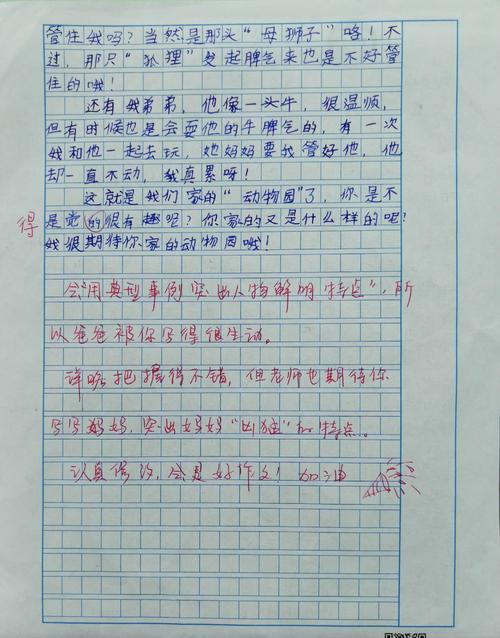 管住我吗？当然是那头“母狮子”咯！不
过，那只“狐狸”发起脾气来也是不好管
住的哦！
还有我弟弟，他像一头牛，很温顺，
但有时候也是会耍他的牛脾气的，有一次
我和他一起去玩，她妈妈要我管好他，他
却一直不动，我真累呀！
这就是我们家的“动物园”了，你是不
是觉的很有趣呢？你家的又是什么样的呢？
得
我很期待你家的动物园哦！
会用典型事例突出人物鲜明特点，所
以爸爸被你写得很生动。
详略把握得不错，但老师也期待你
写写妈妈，突出妈妈“凶猛”的特点。
认真修改，会是好作文！加油